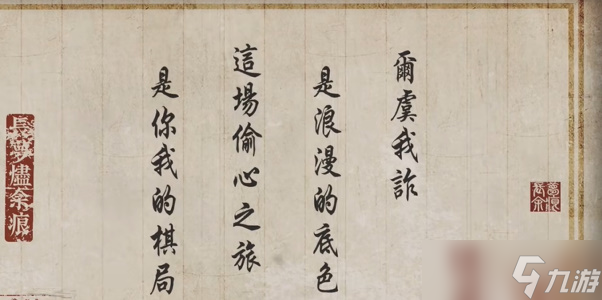 爾虞我詐
是浪漫的底色
這場偷心之旅
是你我的棋局
燼余痕
九游